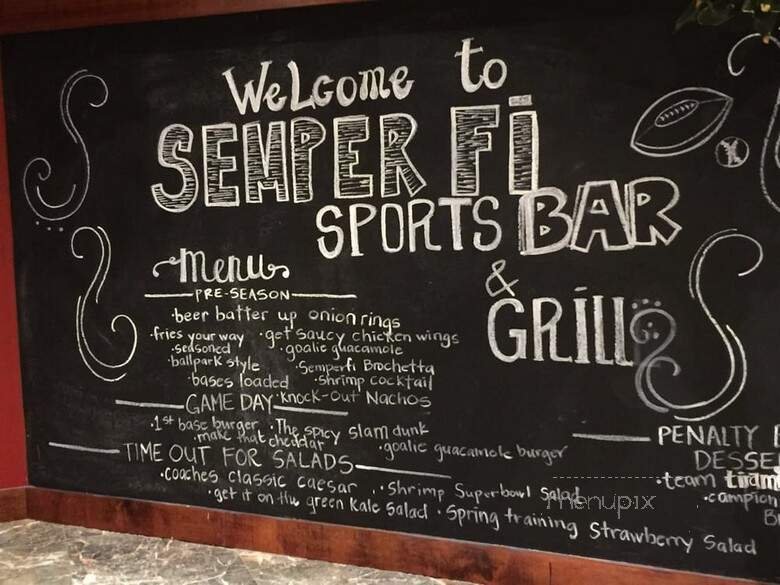 Welcome to
SEMPER Fi
SPORTS BAR
&
GRILL
Menu
PRE-SEASON
·beer batter up onion rings
·fries your way ·get saucy chicken wings
·seasoned ·goalie guacamole
·ballpark style ·Semperfi Brochetta
·bases loaded ·shrimp cocktail
·knock-out Nachos
GAME DAY
·1st base burger ·The spicy slam dunk
·make that cheddar ·goalie guacamole burger
TIME OUT FOR SALADS
·coaches classic caesar ·Shrimp Superbowl Salad
·get it on the green Kale Salad ·Spring training Strawberry Salad
PENALTY
DESSE
·team tiram
·campion
menupix